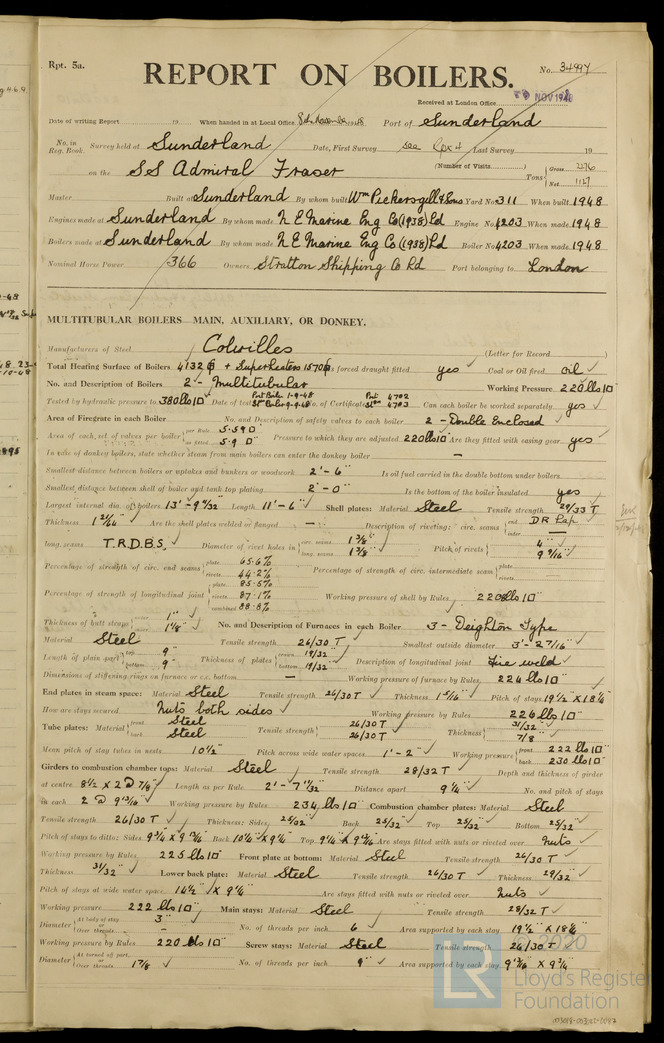 Rpt. 5a.
REPORT ON BOILERS.
No. 34994
Received at London Office NOV 1948
Date of writing Report 19 When handed in at Local Office 1948 Port of Sunderland
No. in Reg. Book. Survey held at Sunderland Date, First Survey see Rpt 4 Last Survey 19
on the SS Admiral Fraser (Number of Visits) Tons Gross 2276 Net 1127
Master Built at Sunderland By whom built Wm Pickersgill & Sons Yard No. 311 When built 1948
Engines made at Sunderland By whom made N E Marine Eng Co (1938) Ld Engine No. 4203 When made 1948
Boilers made at Sunderland By whom made N E Marine Eng Co (1938) Ld Boiler No. 4203 When made 1948
Nominal Horse Power 366 Owners Stratton Shipping Co Ld Port belonging to London
MULTITUBULAR BOILERS MAIN, AUXILIARY, OR DONKEY.
Manufacturers of Steel Colvilles (Letter for Record )
Total Heating Surface of Boilers 4132 + Superheaters 1570 Is forced draught fitted yes Coal or Oil fired oil
No. and Description of Boilers 2 - Multitubular Working Pressure 220 lbs □"
Tested by hydraulic pressure to 380 lbs □" Date of test Port Boiler 1-9-48 Stbd Boiler 9-9-48 No. of Certificate Port 4702 Stbd 4703 Can each boiler be worked separately yes
Area of Firegrate in each Boiler No. and Description of safety valves to each boiler 2 - Double Enclosed
Area of each set of valves per boiler per Rule 5.59 □" as fitted 5.9 □" Pressure to which they are adjusted 220 lbs □" Are they fitted with easing gear yes
In case of donkey boilers, state whether steam from main boilers can enter the donkey boiler —
Smallest distance between boilers or uptakes and bunkers or woodwork 2'-6" Is oil fuel carried in the double bottom under boilers
Smallest distance between shell of boiler and tank top plating 2'-0" Is the bottom of the boiler insulated yes
Largest internal dia. of boilers 13'-9 9/32" Length 11'-6" Shell plates: Material Steel Tensile strength 29/33 T
Thickness 1 21/64" Are the shell plates welded or flanged — Description of riveting: circ. seams end DR Lap inter —
long. seams T.R.D.B.S. Diameter of rivet holes in circ. seams 1 3/8" long. seams 1 3/8" Pitch of rivets 4" 9 9/16"
Percentage of strength of circ. end seams plate 65.6% rivets 44.2% Percentage of strength of circ. intermediate seam plate rivets
Percentage of strength of longitudinal joint plate 85.5% rivets 87.1% combined 88.8% Working pressure of shell by Rules 220 lbs □"
Thickness of butt straps 1" 1 1/8" No. and Description of Furnaces in each Boiler 3 - Deighton Type
Material Steel Tensile strength 26/30 T Smallest outside diameter 3'-2 7/16"
Length of plain part top 9" bottom 9" Thickness of plates crown 19/32" bottom 19/32" Description of longitudinal joint Fire weld
Dimensions of stiffening rings on furnace or c.c. bottom — Working pressure of furnace by Rules 224 lbs □"
End plates in steam space: Material Steel Tensile strength 26/30 T Thickness 1 5/16" Pitch of stays 19 1/2" x 18 1/4"
How are stays secured Nuts both sides Working pressure by Rules 226 lbs □"
Tube plates: Material front Steel back Steel Tensile strength 26/30 T 26/30 T Thickness 31/32" 7/8"
Mean pitch of stay tubes in nests 10 1/2" Pitch across wide water spaces 1'-2" Working pressure front 222 lbs □" back 230 lbs □"
Girders to combustion chamber tops: Material Steel Tensile strength 28/32 T Depth and thickness of girder
at centre 8 1/2 x 2 @ 7/8" Length as per Rule 2'-7 11/32" Distance apart 9 1/4" No. and pitch of stays
in each 2 @ 9 13/16" Working pressure by Rules 234 lbs □" Combustion chamber plates: Material Steel
Tensile strength 26/30 T Thickness: Sides 25/32" Back 25/32" Top 25/32" Bottom 25/32"
Pitch of stays to ditto: Sides Back Top Are stays fitted with nuts or riveted over nuts
Working pressure by Rules 225 lbs □" Front plate at bottom: Material Steel Tensile strength 26/30 T
Thickness 31/32" Lower back plate: Material Steel Tensile strength 26/30 T Thickness 29/32"
Pitch of stays at wide water space 14 1/2" x 9 1/4" Are stays fitted with nuts or riveted over Nuts
Working pressure 222 lbs □" Main stays: Material Steel Tensile strength 28/32 T
Diameter At body of stay 3" or Over threads — No. of threads per inch 6 Area supported by each stay 19 1/2" x 18 1/4"
Working pressure by Rules 220 lbs □" Screw stays: Material Steel Tensile strength 26/30 T
Diameter At turned off part or Over threads 1 7/8 No. of threads per inch 9" Area supported by each stay 9 13/16" x 9 3/4"
© 2020
LR
Lloyd's Register
Foundation